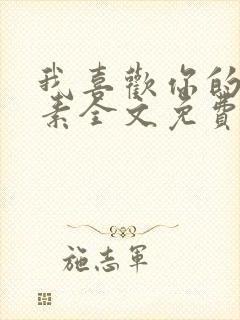 我喜歡你的
素全文免費
施志軍